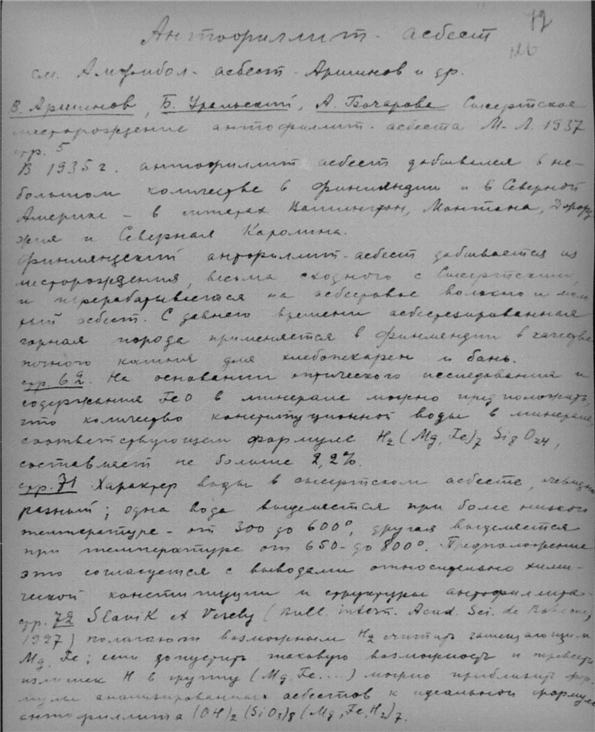 12
126
Антофиллит - асбест
см. Амфибол - асбест - Аршинов и др.
В. Аршинов, Б. Уральский, А. Бочарова Сысертское
месторождение антофиллит-асбеста М-Л. 1937
стр. 5
В 1935 г. антофиллит асбест добывался в не-
большом количестве в Финляндии и в Северной
Америке - в штатах Вашингтон, Монтана, Джорд-
жия и Северная Каролина.
Финляндский антофиллит-асбест добывается из
месторождения, весьма сходного с Сысертским,
и перерабатывается на асбестовое волокно и моло-
тый асбест. С давнего времени асбестизированная
горная порода применяется в Финляндии в качестве
печного камня для хлебопекарен и бань.
стр. 62. На основании оптического исследования и
содержания FeO в минерале можно предположить,
что количество конституционной воды в минерале,
соответствующем формуле H2(Mg,Fe)7 Si8 O24,
составляет не больше 2,2%.
стр. 71 Характер воды в сысертском асбесте, очевидно
разный; одна вода выделяется при более низкой
температуре - от 300 до 600°, другая выделяется
при температуре от 650- до 800°. Предположение
это согласуется с выводами относительно хими-
ческой конституции и структуры антофиллита-
стр. 72 Slavik et Veseby (Bull. intern. Acad. Sci. de Bohême,
1927) полагают возможным H2 считать замещающим
Mg, Fe; если допустить таковую возможность и перевести
излишек H в группу (Mg, Fe....) можно приблизить фор-
мулы анализированного асбестов к идеальной формуле
антофиллита (OH)2 (SiO3)8 (Mg, Fe, H2)7.